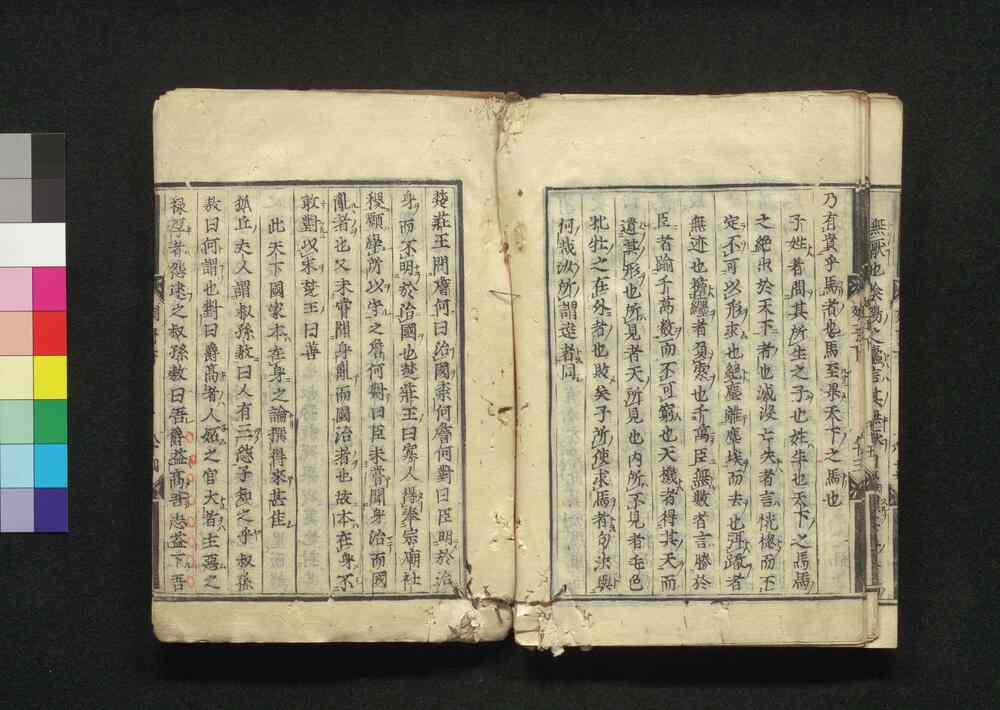 乃有貴乎馬者也馬至果天下之馬也
子姓者問其所生之子也姓生也天下之馬馬
之絶出於天下者也滅没亡失者言恍惚而不
定不可以形求也絶塵離塵埃而去也弭轍者
無迹也擔纆者負索也千萬臣無數者言勝於
臣者踰千萬數而不可窮也天機者得其天而
遺其形也所見者天所見也内所不見者毛色
牝牡之在外者也敗矣子所使求馬者句法與
何哉汝所謂逹者同
楚莊王問詹何曰治國柰何詹何對曰臣明於治
身而不明於治國也楚莊王曰寡人得奉宗廟社
稷願學所以守之詹何對曰臣未嘗聞身治而國
亂者也又未嘗聞身亂而國治者也故本在身不
敢對以末楚王曰善
此天下國家本在身之論撰得來甚佳
狐丘丈人謂叔孫敖曰人有三怨子知之乎叔孫
敖曰何謂也對曰爵高者人妬之官大者主惡之
祿厚者怨逮之叔孫敖曰吾爵益高吾志益下吾